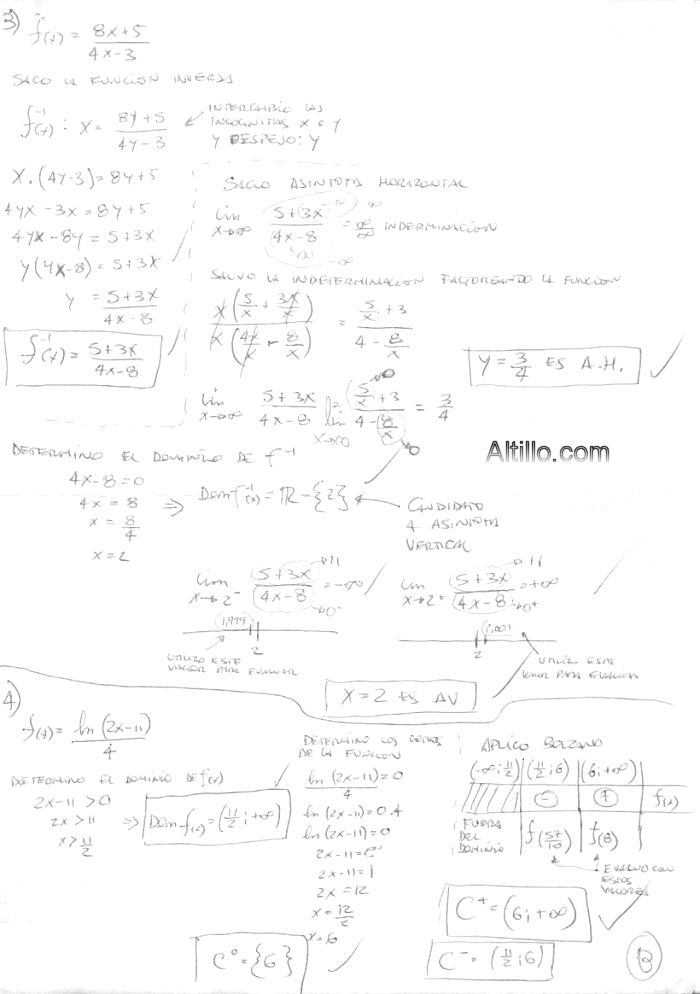 3) f(x) = 8x+5 / 4x-3
SACO LA FUNCION INVERSA
f⁻¹(x): X = 8y+5 / 4y-3 ← INTERCAMBIO LAS INCOGNITAS X e Y Y DESPEJO: Y
X.(4y-3) = 8y+5
4yx - 3x = 8y+5
4yx - 8y = 5+3x
y(4x-8) = 5+3x
y = 5+3x / 4x-8
f⁻¹(x) = 5+3x / 4x-8
SACO ASINTOTA HORIZONTAL
Lim x→∞ 5+3x / 4x-8 = ∞/∞ INDERMINACION
SALVO LA INDETERMINACION FACTOREANDO LA FUNCION
x(5/x + 3x/x) / x(4x/x - 8/x) = 5/x + 3 / 4 - 8/x
Lim x→∞ 5+3x / 4x-8 = lim x→∞ 5/x + 3 / 4 - 8/x = 3/4
y = 3/4 ES A.H.
Altillo.com
DETERMINO EL DOMINIO DE f⁻¹
4x-8=0
4x = 8
x = 8/4
x=2
⇒ Dom f⁻¹(x) = ℝ - {2} ← CANDIDATO A ASINTOTA VERTICAL
Lim x→2⁻ 5+3x →11 / 4x-8 →0⁻ = -∞
Lim x→2⁺ 5+3x →11 / 4x-8 →0⁺ = +∞
1,999 2
UTILIZO ESTE VALOR PARA EVALUAR
2 2,001
UTILIZO ESTE VALOR PARA EVALUAR
X=2 ES AV
4) f(x) = ln(2x-11) / 4
DETERMINO EL DOMINIO DE f(x)
2x-11 > 0
2x > 11
x > 11/2
⇒ Dom f(x) = (11/2; +∞)
DETERMINO LOS CEROS DE LA FUNCION
ln(2x-11) / 4 = 0
ln(2x-11) = 0.4
ln(2x-11) = 0
2x-11 = e⁰
2x-11 = 1
2x = 12
x = 12/2
x = 6
C⁰ = {6}
APLICO BOLZANO
(-∞; 11/2) | (11/2; 6) | (6; +∞)
- | + | f(x)
FUERA DEL DOMINIO | f(57/10) | f(8)
EVALUO CON ESTOS VALORES
C⁺ = (6; +∞)
C⁻ = (11/2; 6)
B